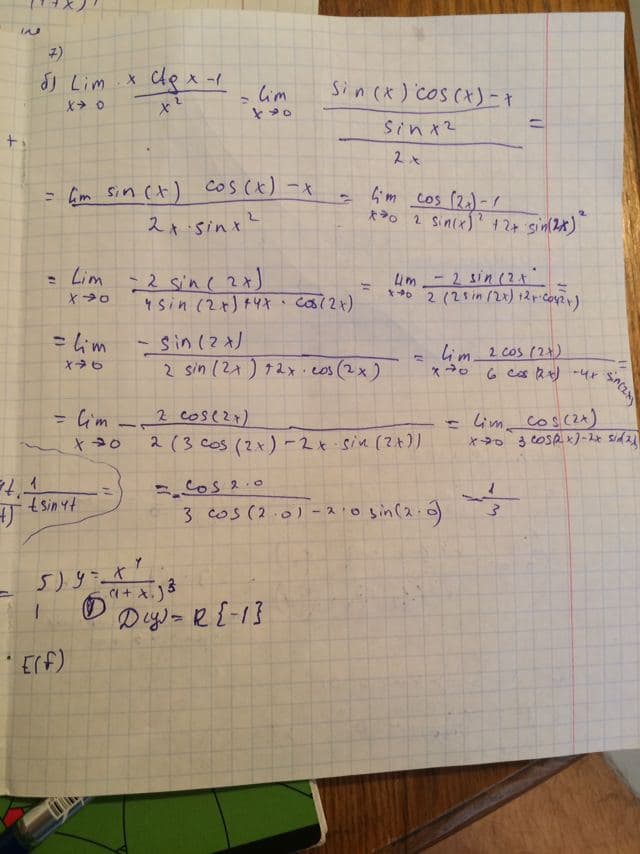 7)
б) Lim x→0 x ctg x -1 / x² = lim x→0 sin(x) cos(x) - x / sin x² / 2x =
= lim sin(x) cos(x) - x / 2x · sin x² = lim x→0 cos(2x) - 1 / 2 sin(x)² + 2x sin(2x)²
= Lim x→0 -2 sin(2x) / 4 sin(2x) + 4x · cos(2x) = lim x→0 -2 sin(2x / 2(2 sin(2x) + 2x · cos2x) =
= lim x→0 - sin(2x) / 2 sin(2x) + 2x · cos(2x) = lim x→0 2 cos(2x) / 6 cos(2x) - 4x sin(2x) =
= Lim x→0 - 2 cos(2x) / 2(3 cos(2x) - 2x · sin(2x)) = Lim x→0 cos(2x) / 3 cos(2x) - 2x sin(2x
1 / t sin 4t = = - cos 2·0 / 3 cos(2·0) - 2·0 sin(2·0) = - 1/3
5) y = x⁴ / (1 + x)³
1 D(y) = R {-1}
E(f)